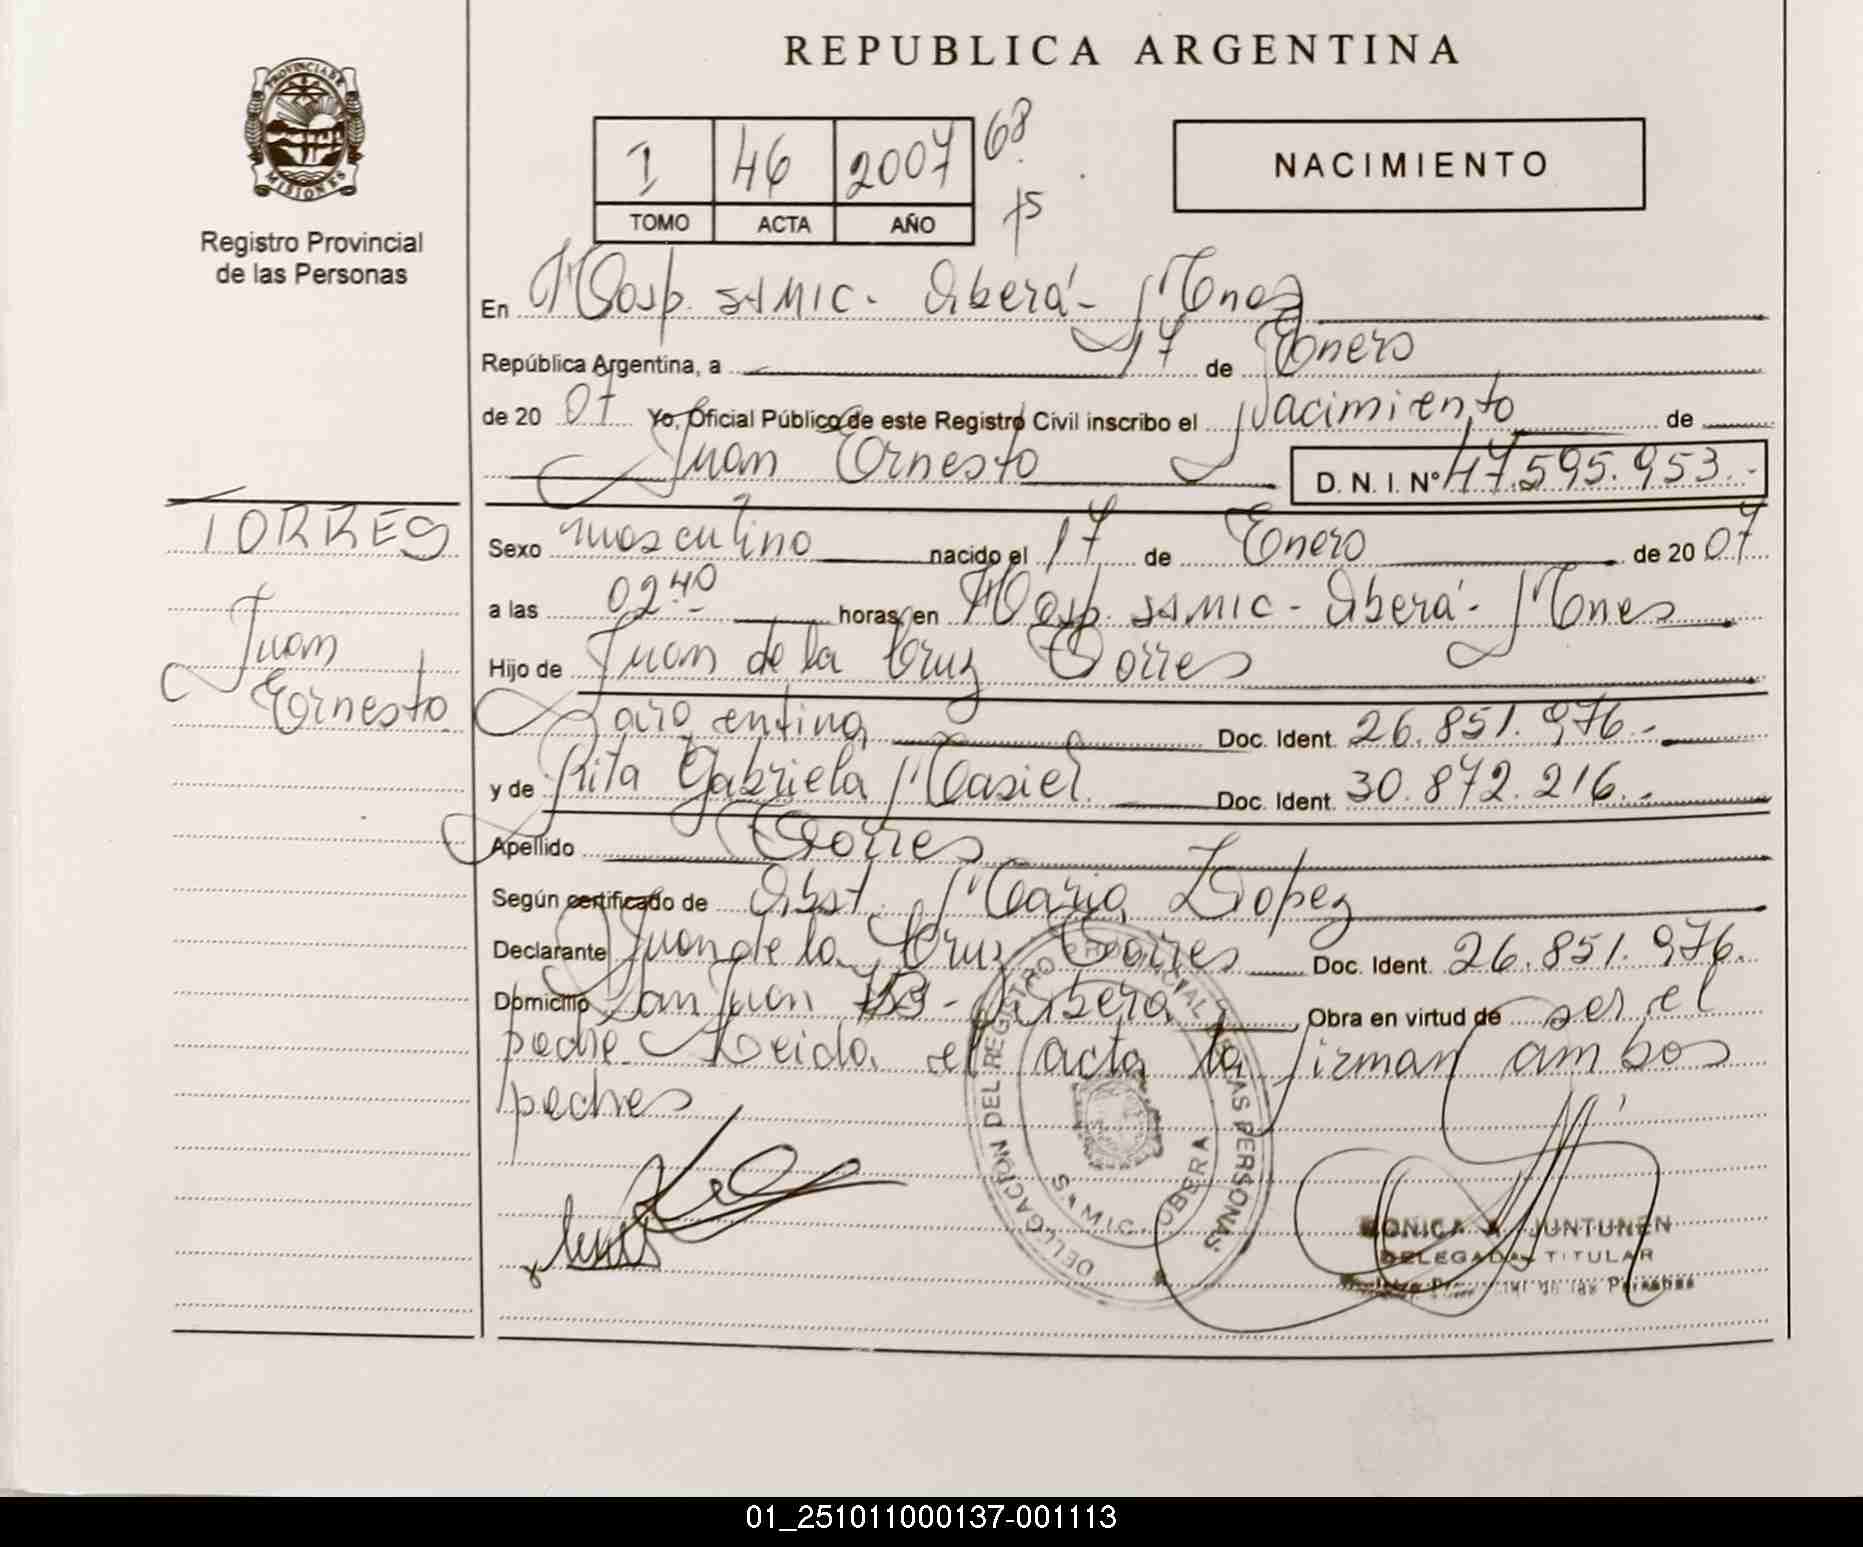 REPUBLICA ARGENTINA
PROVINCIA DE
MISIONES
Registro Provincial
de las Personas
I 46 2007 68
TOMO ACTA AÑO
NACIMIENTO
En Hosp. SAMIC. Oberá - Mnes
República Argentina, a 17 de Enero
de 20 07 Yo, Oficial Público de este Registro Civil inscribo el Nacimiento de
Juan Ernesto D. N. I. Nº 47.595.953.-
TORRES
Juan
Ernesto
Sexo masculino nacido el 17 de Enero de 20 07
a las 02:40 horas, en Hosp. SAMIC - Oberá - Mnes
Hijo de Juan de la Cruz Torres
argentina Doc. Ident. 26.851.976.-
y de Rita Gabriela Masiel Doc. Ident. 30.872.216.-
Apellido Torres
Según certificado de Obst. Maria Lopez
Declarante Juan de la Cruz Torres Doc. Ident. 26.851.976.
Domicilio San Juan - Oberá Obra en virtud de ser el
padre. Leida el acta la firman ambos
padres
DELEGACIÓN DEL REGISTRO PROVINCIAL DE LAS PERSONAS
SAMIC OBERA
MONICA A. JUNTUNEN
DELEGADA TITULAR
Registro Provincial de las Personas
01_251011000137-001113